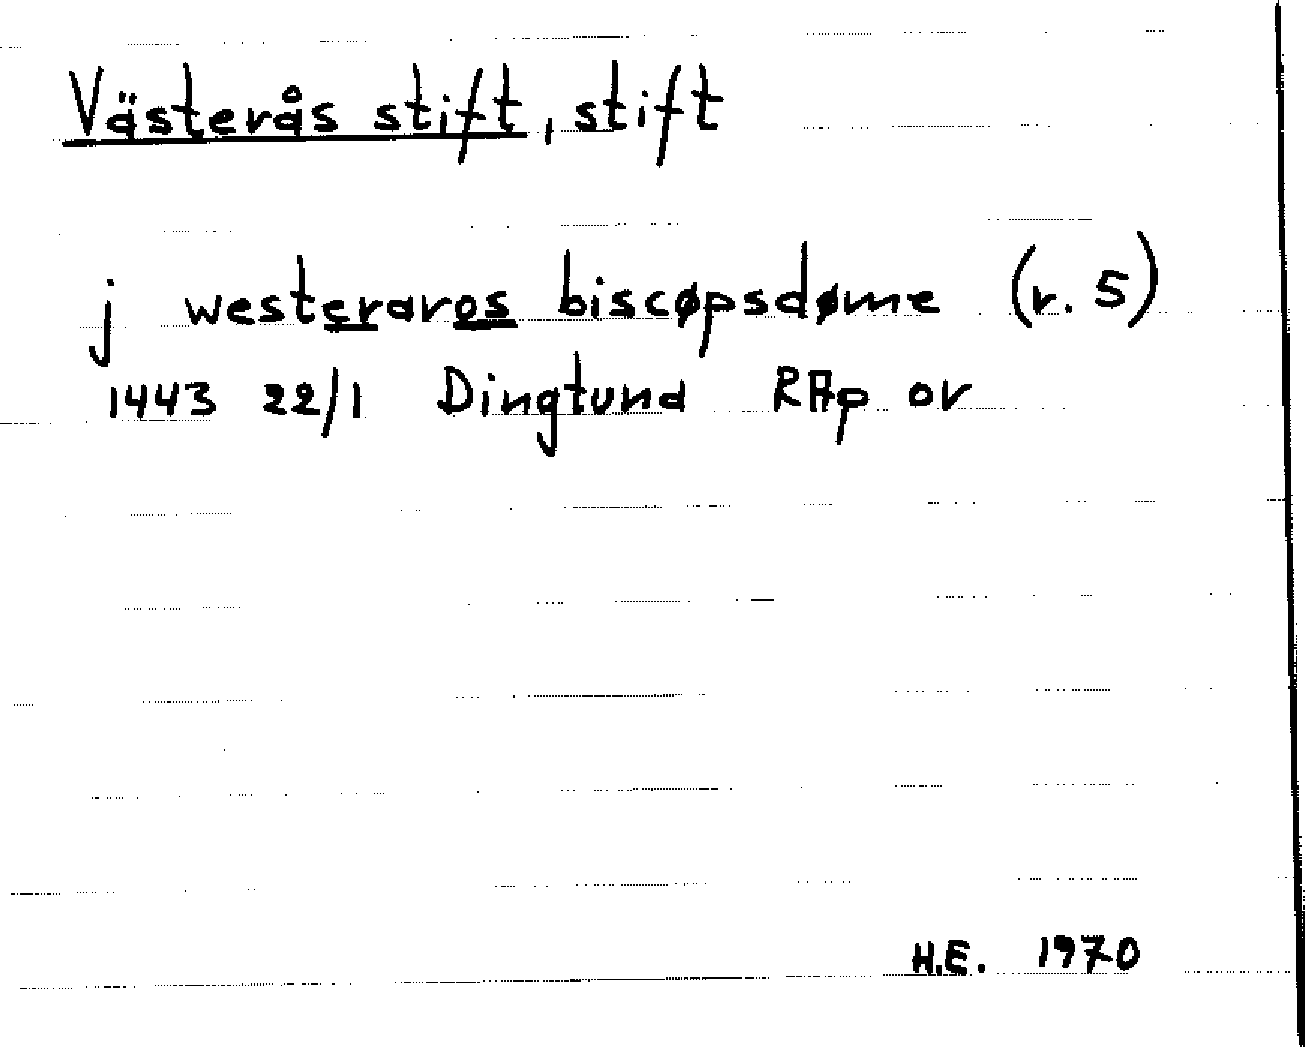 Västerås stift, stift
j westeraros biscøpsdøme (r. 5)
1443 22/1 Dingtund RAp or
H.E. 1970